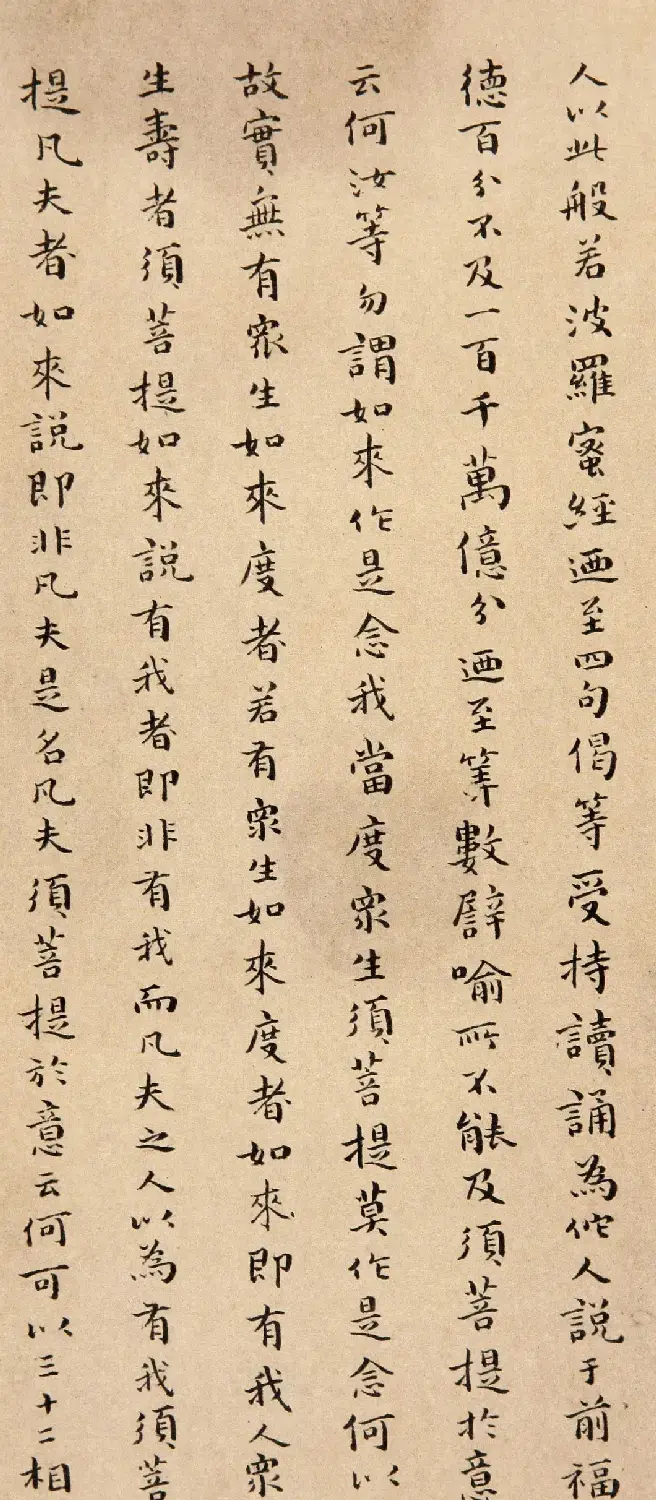 人以此般若波羅蜜經迺至四句偈等受持讀誦為佗人説于前福
德百分不及一百千萬億分迺至筭數譬喻所不能及須菩提於意
云何汝等勿謂如來作是念我當度衆生須菩提莫作是念何以
故實無有衆生如來度者若有衆生如來度者如來即有我人衆
生壽者須菩提如來説有我者即非有我而凡夫之人以為有我須菩
提凡夫者如來説即非凡夫是名凡夫須菩提於意云何可以三十二相